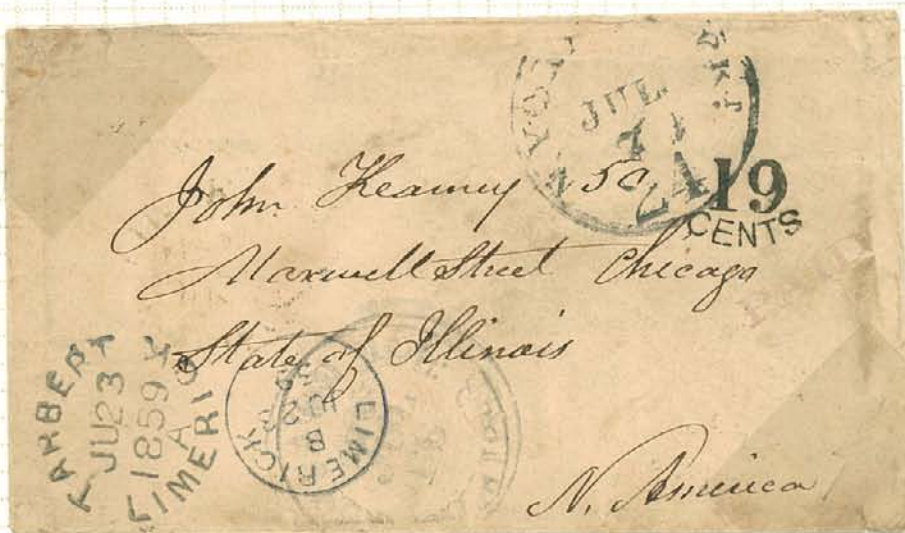 JUL.
24
19
CENTS
John Kearney 50
Maxwell Street Chicago
State of Illinois
N. America
TARBERT
JU 23
1859
A
LIMERICK
LIMERICK
B